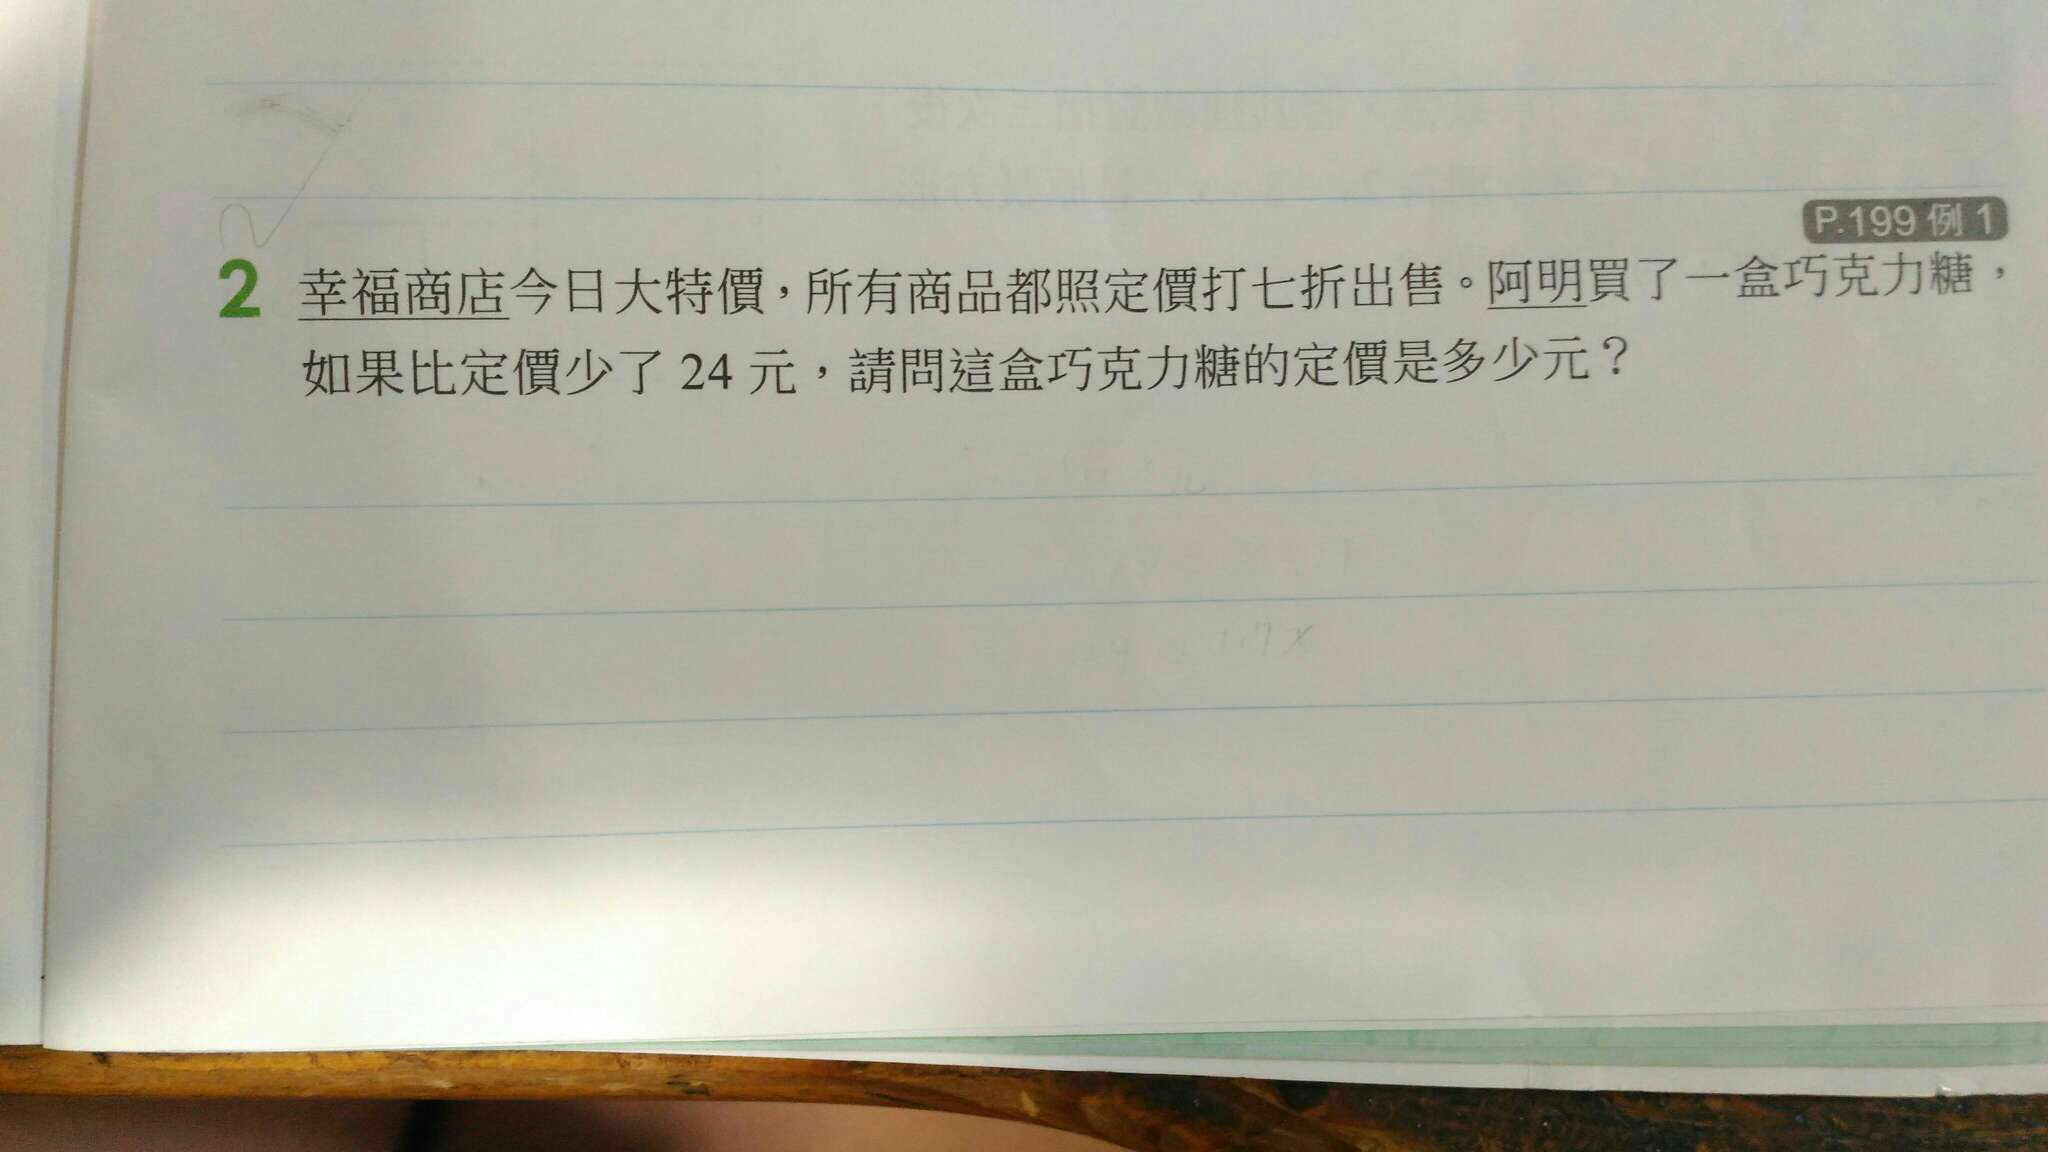 P.199 例 1
2 幸福商店今日大特價，所有商品都照定價打七折出售。阿明買了一盒巧克力糖，
如果比定價少了 24 元，請問這盒巧克力糖的定價是多少元？